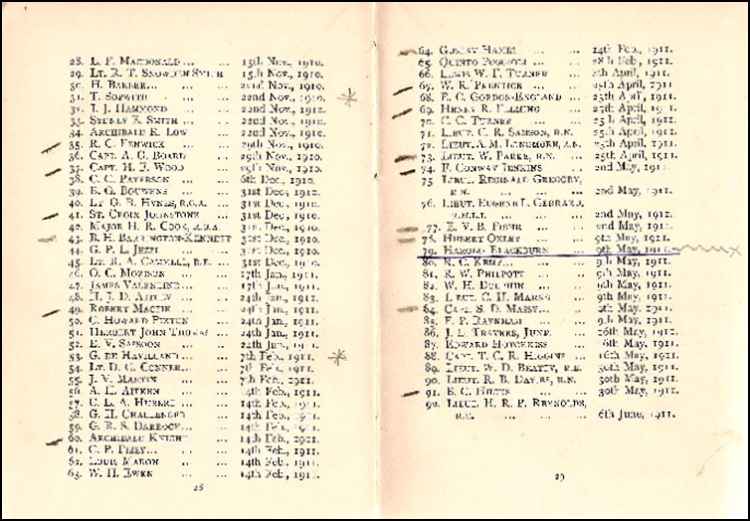 28. L. F. MACDONALD ... ... 15th Nov., 1910.
29. LT. R. T. SNOWDEN SMITH 15th Nov., 1910.
30. H. BARBER ... ... 22nd Nov., 1910.
31. T. SOPWITH ... ... 22nd Nov., 1910.
32. J. J. HAMMOND ... 22nd Nov., 1910.
33. SYDNEY E. SMITH ... 22nd Nov., 1910.
34. ARCHIBALD R. LOW ... 22nd Nov., 1910.
35. R. C. FENWICK ... 29th Nov., 1910.
36. CAPT. A. G. BOARD ... 29th Nov., 1910.
37. CAPT. H. F. WOOD ... 29th Nov., 1910.
38. C. C. PATERSON ... 6th Dec., 1910.
39. B. G. BOUWENS ... 31st Dec., 1910.
40. LT. G. B. HYNES, R.G.A. ... 31st Dec., 1910.
41. ST. CROIX JOHNSTONE ... 31st Dec., 1910.
42. MAJOR H. R. COOK, R.G.A. 31st Dec., 1910.
43. B. H. BARRINGTON-KENNETT 31st Dec., 1910.
44. G. P. L. JEZZI ... 31st Dec., 1910.
45. LT. R. A. CAMMELL, R.E. 31st Dec., 1910.
46. O. C. MORISON ... 17th Jan., 1911.
47. JAMES VALENTINE ... 17th Jan., 1911.
48. H. J. D. ASTLEY ... 24th Jan., 1911.
49. ROBERT MACFIE ... 24th Jan., 1911.
50. C. HOWARD PIXTON ... 24th Jan., 1911.
51. HERBERT JOHN THOMAS ... 24th Jan., 1911.
52. E. V. SASSOON ... 24th Jan., 1911.
53. G. DE HAVILLAND ... 7th Feb., 1911.
54. LT. D. G. CONNER ... 7th Feb., 1911.
55. J. V. MARTIN ... 7th Feb., 1911.
56. A. H. AITKEN ... 14th Feb., 1911.
57. C. L. A. HUBERT ... 14th Feb., 1911.
58. G. H. CHALLENGER ... 14th Feb., 1911.
59. G. R. S. DARROCH ... 14th Feb., 1911.
60. ARCHIBALD KNIGHT ... 14th Feb., 1911.
61. C. P. PIZEY ... ... 14th Feb., 1911.
62. LOUIS MARON ... ... 14th Feb., 1911.
63. W. H. EWEN ... ... 14th Feb., 1911.
28
64. GUSTAV HAMEL ... ... 14th Feb., 1911.
65. QUINTO POGGIOLI ... ... 28th Feb., 1911.
66. LEWIS W. F. TURNER ... April, 1911.
67. W. R. PRENTICE ... ... April, 1911.
68. E. C. GORDON-ENGLAND ... 25th April, 1911.
69. HENRY R. FLEMING ... 25th April, 1911.
70. C. C. TURNER ... 25th April, 1911.
71. LIEUT. C. R. SAMSON, R.N. 25th April, 1911.
72. LIEUT. A. M. LONGMORE, R.N. 25th April, 1911.
73. LIEUT. W. PARKE, R.N. ... 25th April, 1911.
74. F. CONWAY JENKINS ... 2nd May, 1911.
75. LIEUT. REGINALD GREGORY,
R.N. ... ... ... 2nd May, 1911.
76. LIEUT. EUGENE L. GERRARD,
R.M.L.I. ... ... 2nd May, 1911.
77. E. V. B. FISHER ... ... 2nd May, 1911.
78. HUBERT OXLEY ... ... 9th May, 1911.
79. HAROLD BLACKBURN ... 9th May, 1911.
80. R. C. KEMP ... ... 9th May, 1911.
81. R. W. PHILPOTT ... ... 9th May, 1911.
82. W. H. DOLPHIN ... ... 9th May, 1911.
83. LIEUT. C. H. MARKS ... 9th May, 1911.
84. CAPT. S. D. MASSY ... ... 9th May, 1911.
85. F. P. RAYNHAM ... ... 9th May, 1911.
86. J. L. TRAVERS, JUNR. ... 16th May, 1911.
87. EDWARD HOTCHKISS ... 16th May, 1911.
88. CAPT. T. C. R. HIGGINS ... 16th May, 1911.
89. LIEUT. W. D. BEATTY, R.E. 30th May, 1911.
90. LIEUT. R. B. DAVIES, R.N. 30th May, 1911.
91. E. C. ... ... 30th May, 1911.
92. LIEUT. H. R. P. REYNOLDS,
R.E. ... ... ... 6th June, 1911.
29